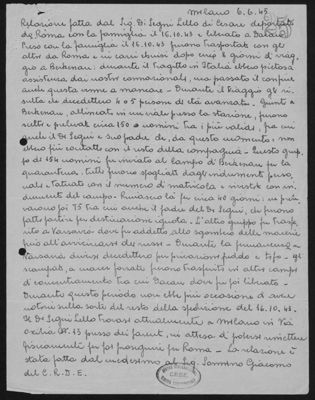 Milano 6.6.45.
Relazione fatta dal Sig. Di Segni Lello di Cesare deportato
da Roma con la famiglia il 16.10.43 e liberato a Dacau.
Preso con la famiglia il 16.10.43 furono trasportati con gli
altri da Roma e in carri chiusi dopo circa 6 giorni di viag-
gio a Birkenau. durante il tragitto in Italia ebbero pietosa
assistenza dai nostri connazionali, ma passato il confine
anche questa venne a mancare - Durante il viaggio gli ri-
sulta che decedettero 4 o 5 persone di età avanzata. Giunti a
Birkenau, allineati in un viale presso la stazione, furono
scelti e prelevati circa 150 uomini tra i più validi, fra cui
anche il Di Segni e suo padre che, da questo momento non
ebbero più contatti con il resto della compagnia - Questo grup-
po di 154 uomini fu inviato al campo di Birkenau per la
quarantena. Tutti furono spogliati dagli indumenti perso-
nali, tatuati con il numero di matricola e rivestiti con in-
dumenti del campo. Rimasero là per circa 40 giorni. ne
75 tra cui anche il padre del Di Segni, che furono
fatti partire per destinazione ignota. L'altro gruppo fu trasfe-
rito a Varsavia dove fu addetto allo sgombro delle macerie
fino all'avvicinarsi dei russi - Durante la permanenza a
Varsavia diversi decedettero per privazioni freddo e tifo - gli
scampati, a marce forzate furono trasferiti in altri campi
di concentramento tra cui Dacau dove poi fu liberato -
Durante questo periodo non ebbe più occasione di avere
notizie sulla sorte del resto della spedizione del 16.10.43.
Il Di Segni Lello trovasi attualmente a Milano in Via
presso dei parenti, in attesa di potersi rimettere
fisicamente per poi proseguire per Roma - La relazione è
stata fatta dal medesimo al Sig. Sonnino Giacomo
del C.R.D.E.